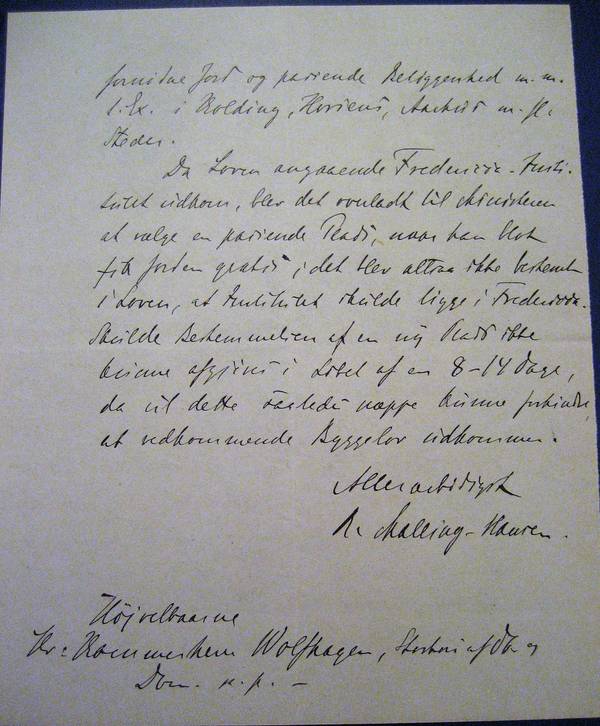 fornødne Jord og passende Beliggenhed m. m.
f. Ex. i Kolding, Horsens, Aarhus m. fl.
Steder.
Da Loven angaaende Fredericia-Insti-
tutet udkom, blev det overladt til Ministeren
at vælge en passende Plads, naar han blot
fik Jorden gratis; det blev altsaa ikke bestemt
i Loven, at Institutet skulde ligge i Fredericia.
Skulde Bestemmelsen af en ny Plads ikke
kunne afgjøres i Løbet af en 8-14 Dage,
da vil dette saaledes næppe kunne forhindre,
at vedkommende Byggelov udkommer.
Allerærbødigst
R. Malling-Hansen.
Højvelbaarne
Hr. Kammerherre Wolfhagen, Storkors af Dbg. og
Dm. p. p. -